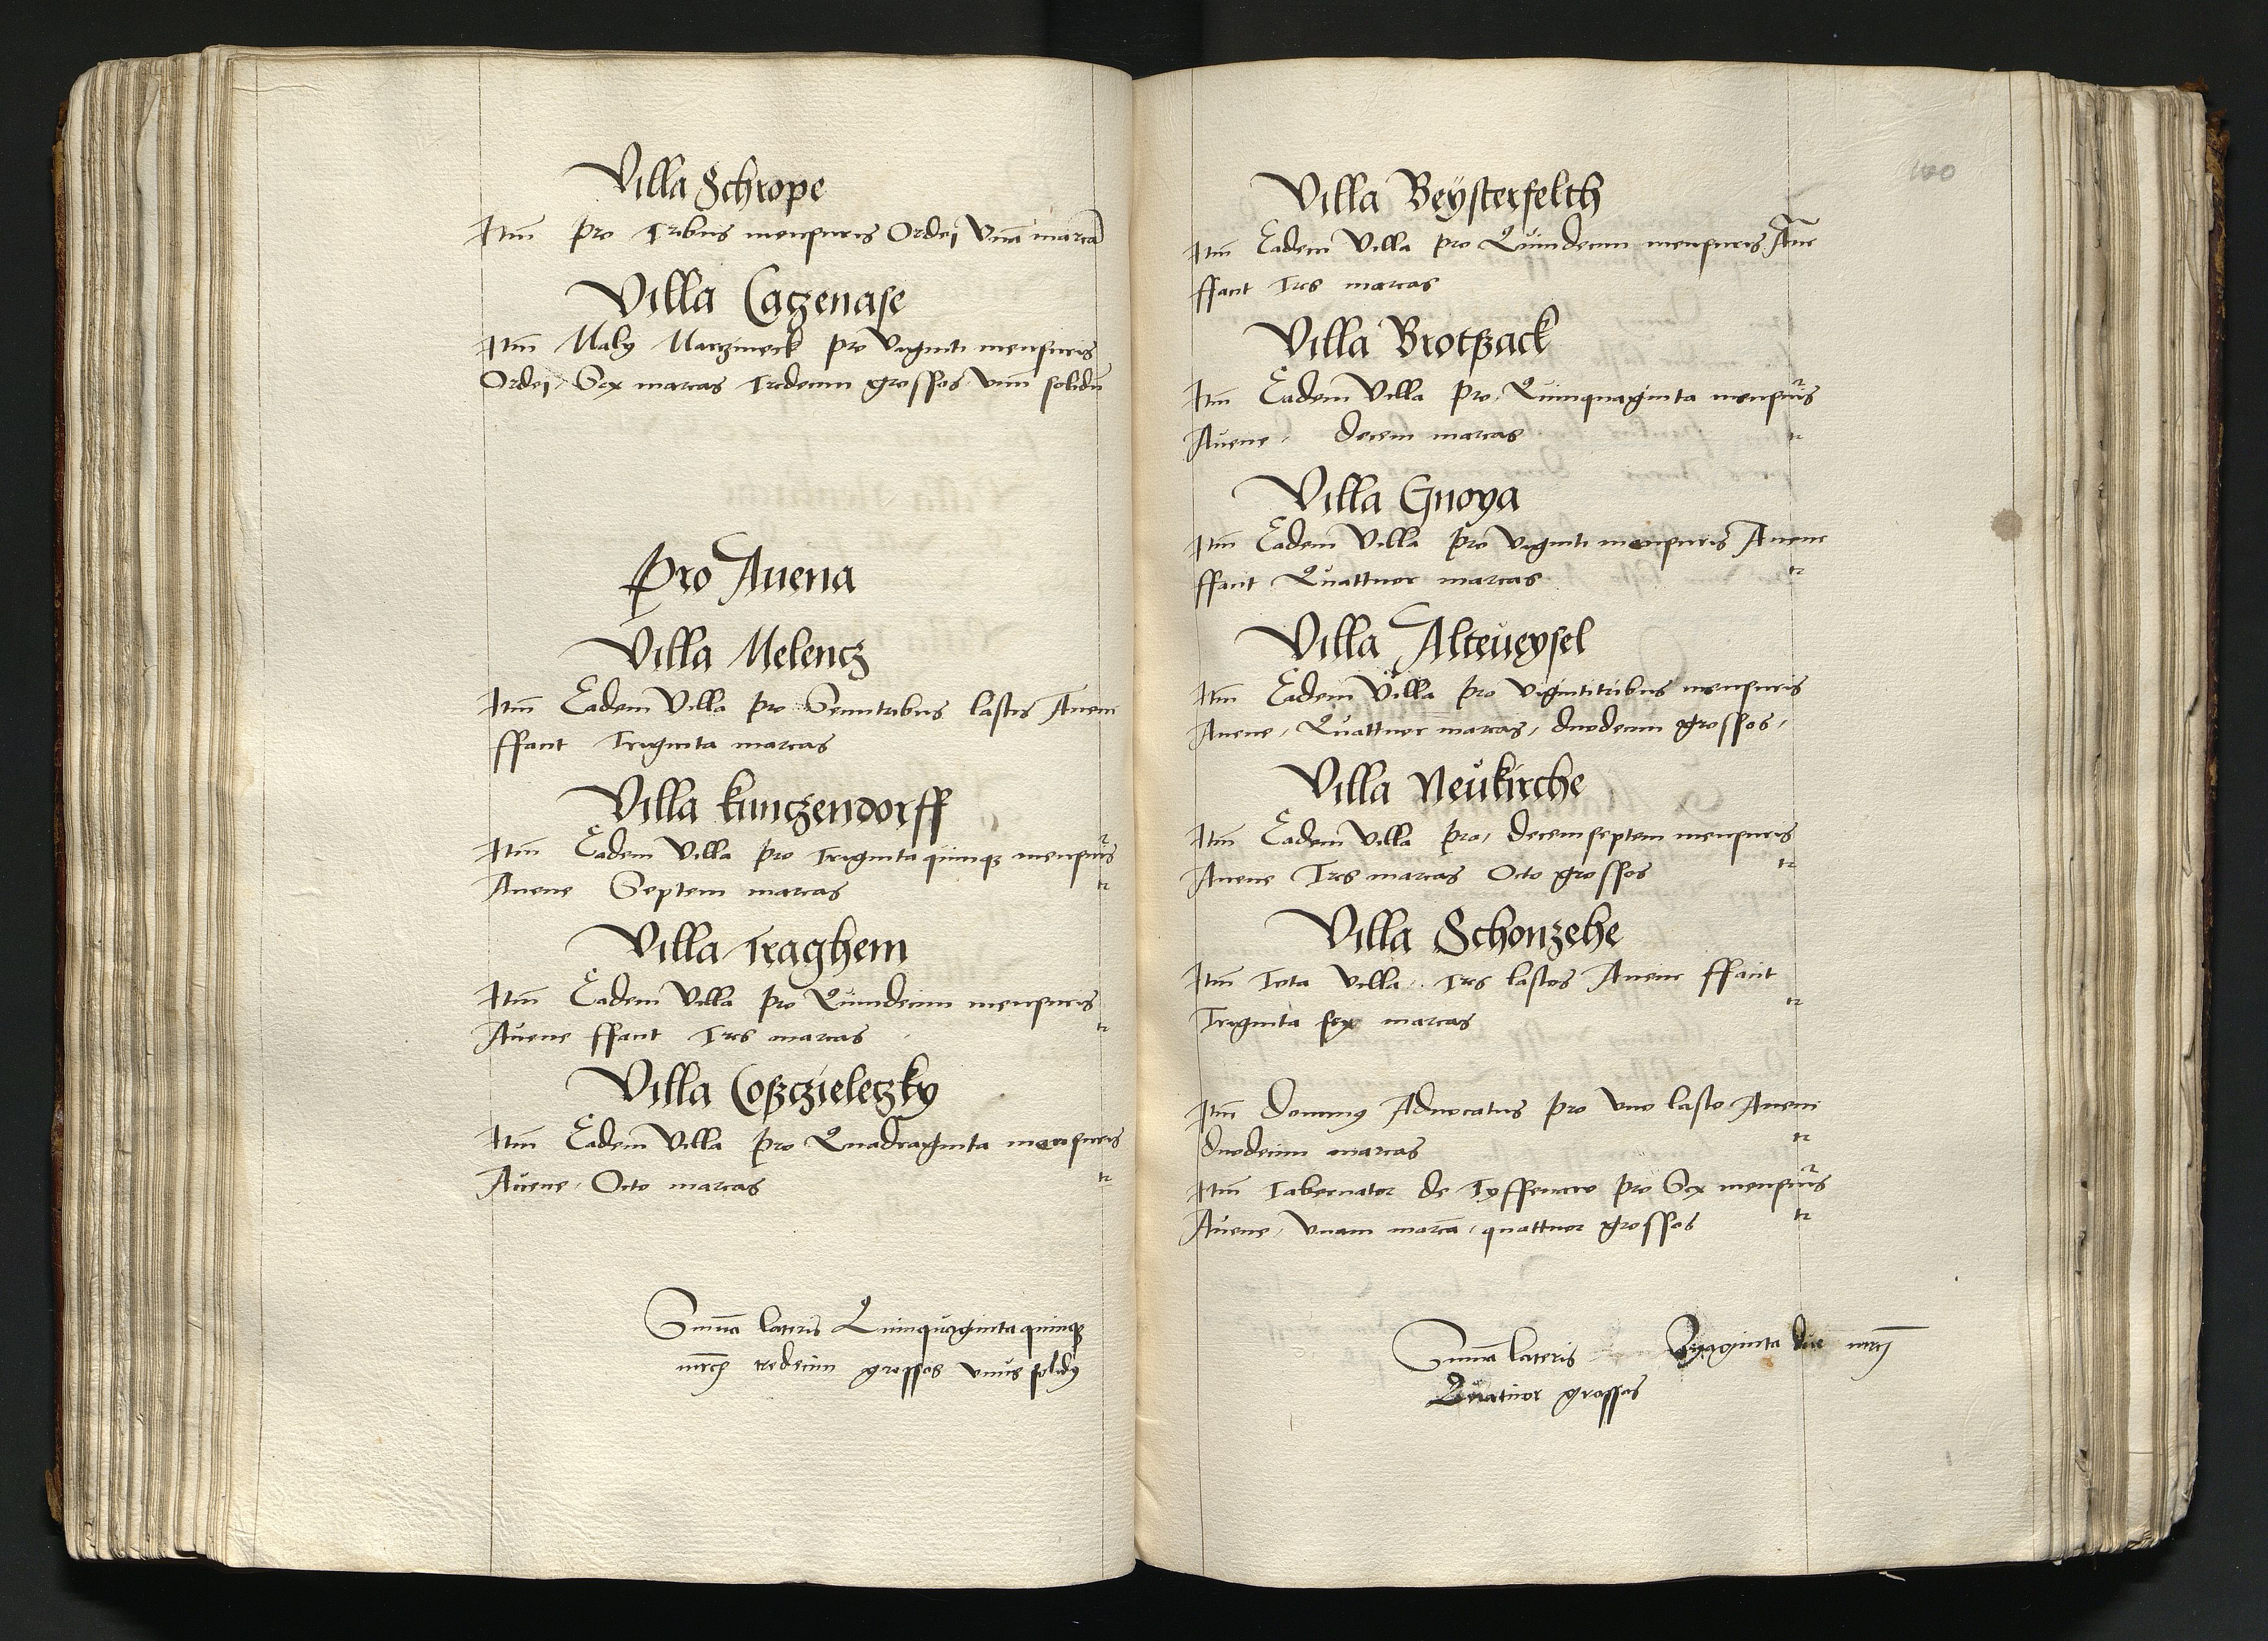 Villa Schrope
Itm̄ pro Tribus mensuris Ordei Vnā marcā
Villa Cagzenase
Itm̄ Maly Marczineck pro Viginti mensuris
Ordei, Sex marcas Tredecim grossos vnū solidū
Pro Auena
Villa Melencz
Itm̄ Eadem Villa pro lastis Auene
ffacit Triginta marcas
Villa kunczendorff
Itm̄ Eadem Villa pro Trigintaquinqȝ mensuris
Auene Septem marcas tz
Villa Traghem
Itm̄ Eadem Villa pro Quindecim mensuris
Auene ffacit Tres marcas tz
Villa Coßczieletzky
Itm̄ Eadem Villa pro Quadraginta mensuris
Auene, Octo marcas tz
Sum̄a lateris Quinquagintaquinqȝ
mrc̄ tredecim grossos vnus solidꝰ
100
Villa Beÿsterfelth
Itm̄ Eadem Villa pro Quindecim mensuris Aūe
ffacit Tres marcas
Villa Brotßack
Itm̄ Eadem Villa pro, Quinquaginta mensuris
Auene, decem marcas tz
Villa Gnoya
Itm̄ Eadem Villa pro Viginti mensuris Auene
ffacit Quattuor marcas tz
Villa Alteueysel
Itm̄ Eadem Villa pro Vigintitribus mensuris
Auene, Quattuor marcas, duodecim grossos,
Villa Neukirche
Itm̄ Eadem Villa pro, decemseptem mensuris
Auene Tres marcas Octo grossos tz
Villa Schonzehe
Itm̄ Tota Villa, Tres lastos Auene ffacit
Triginta sex marcas tz
Itm̄ Dominꝰ Aduocatus pro vno lasto Aueni
duodecim marcas tz
Itm̄ Tabernator de Tyffenaw pro Sex mensuris
Auene, vnam marcā, quattuor grossos tz
Sum̄a lateris due mrc̄
Quatuor grossos